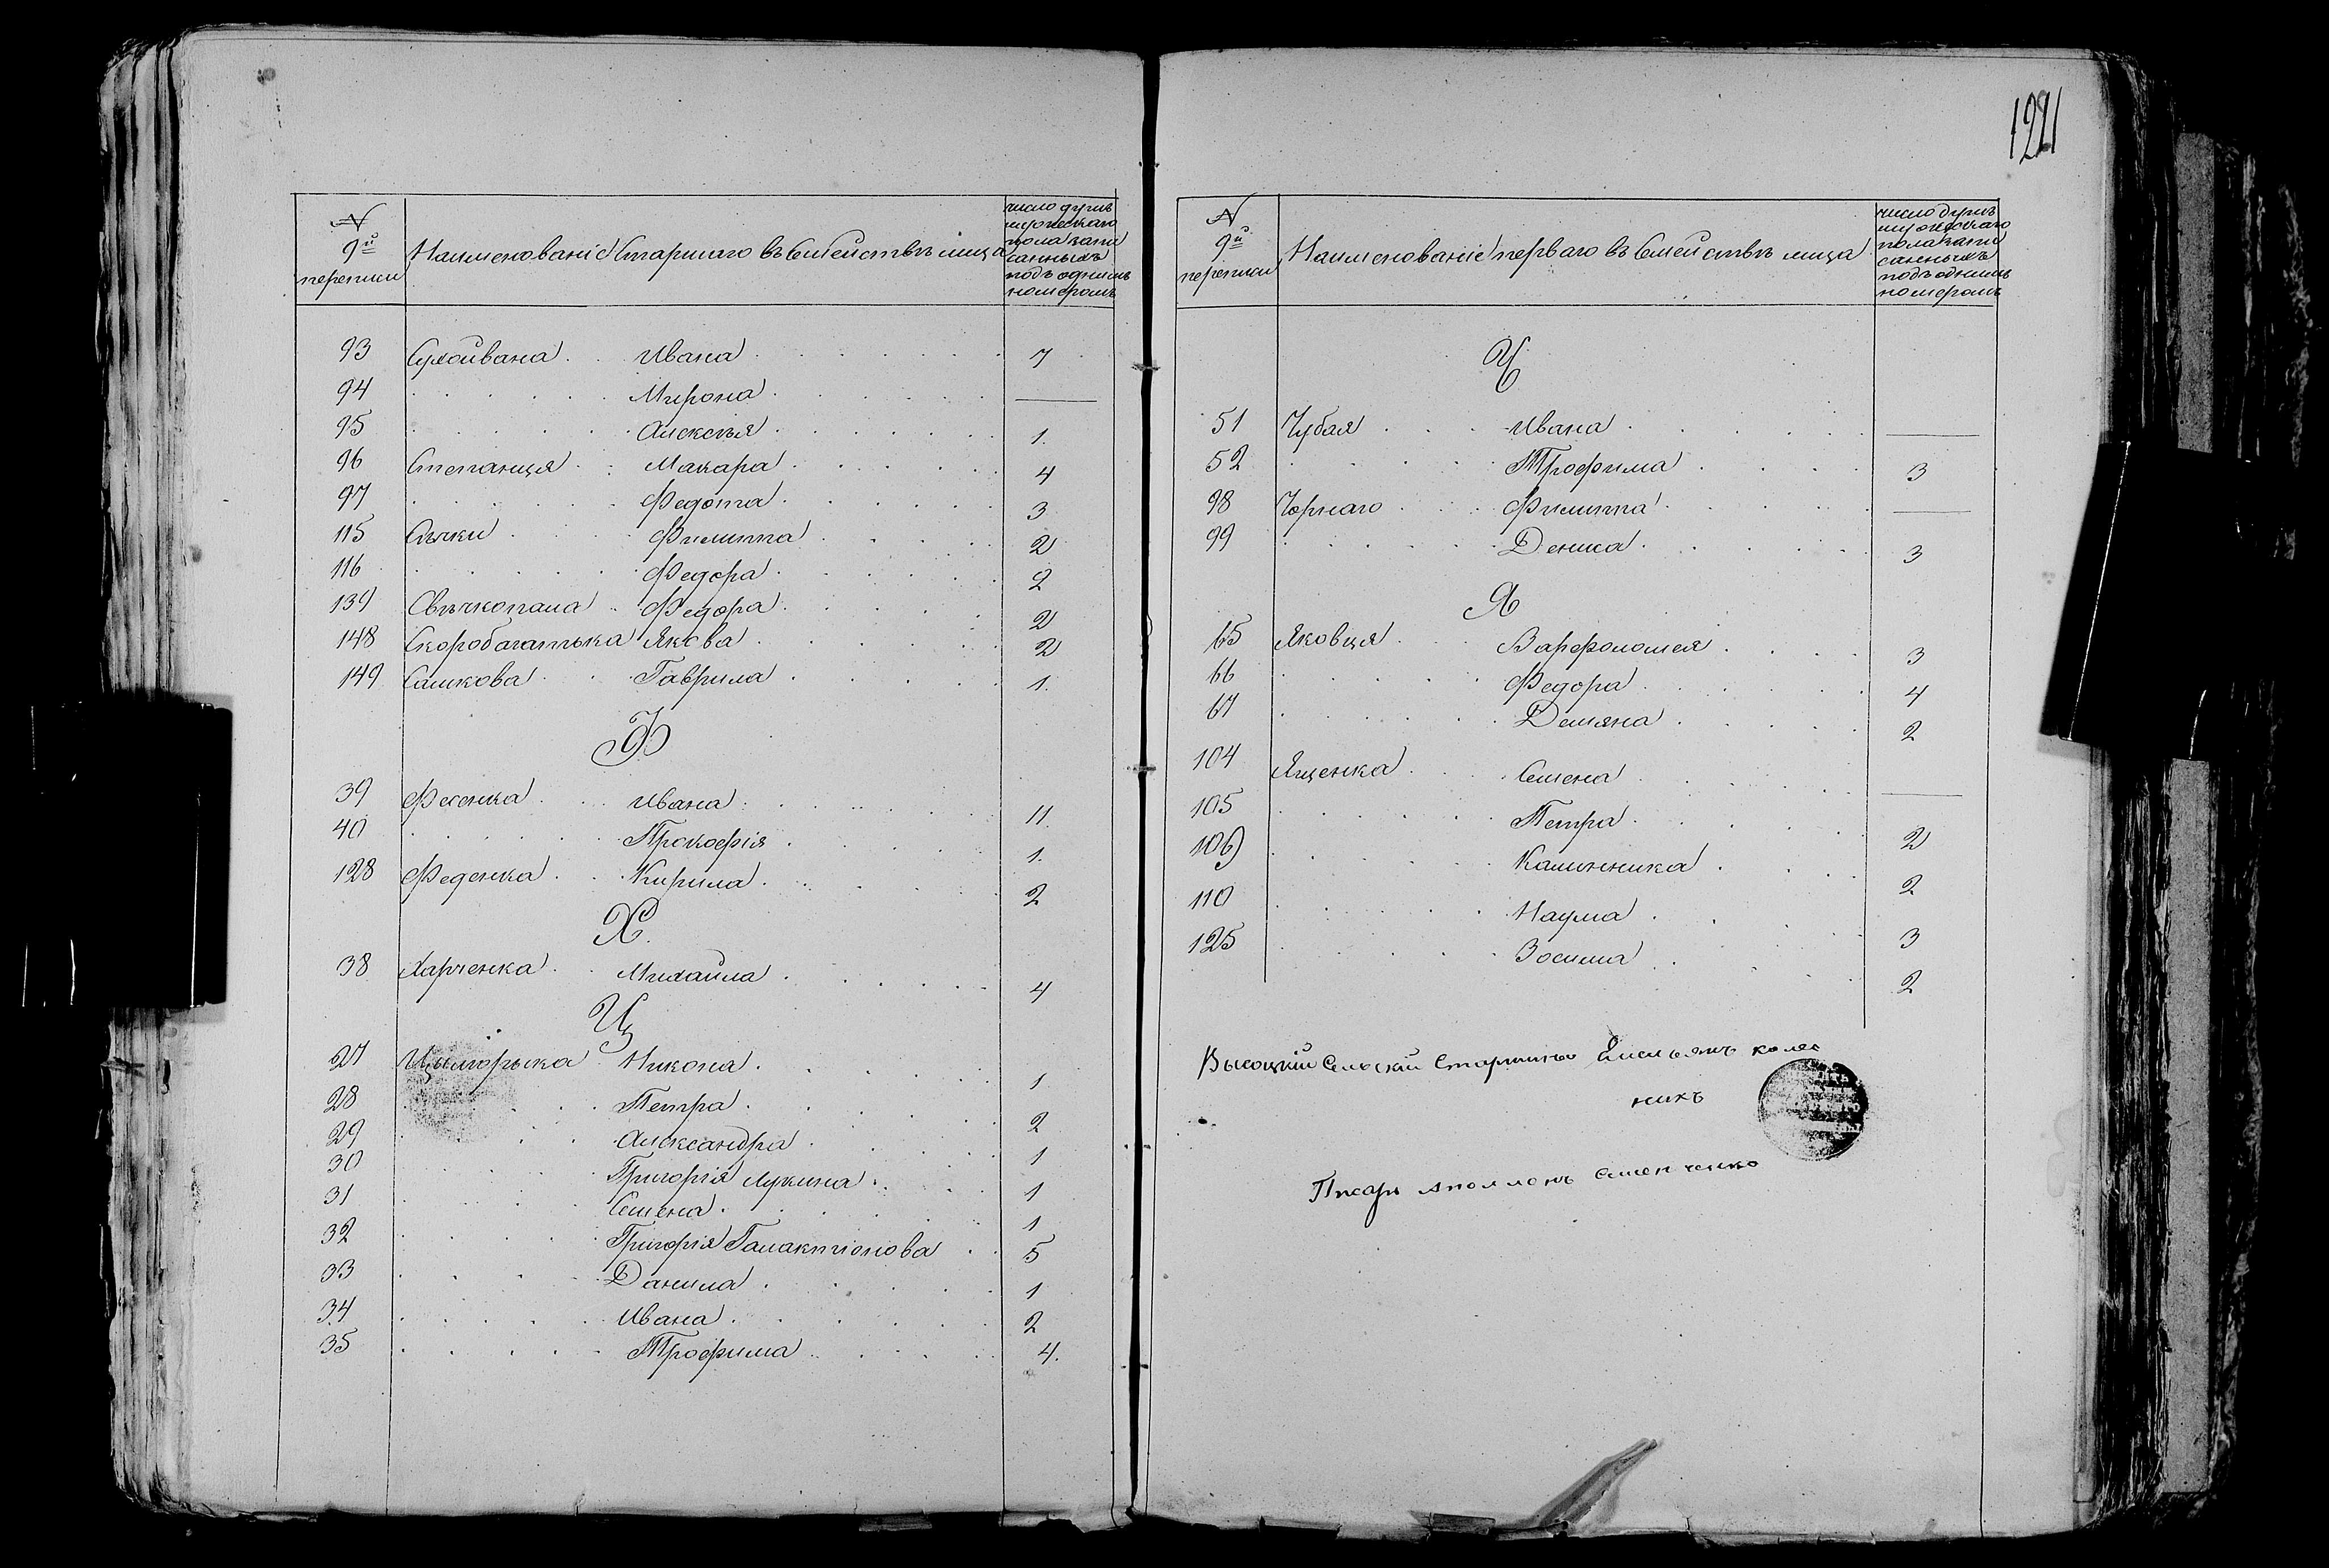 1221
№ 9й переписи
Наименованіе Старшаго въ Семействѣ лица
число душъ мужескаго пола записанныхъ подъ однимъ номеромъ
93 Сухойвана Ивана 7
94 Мирона —
95 Алексѣя 1.
96 Степанця Макара 4
97 Федота 3
115 Сѣчки Филиппа 2
116 Федора 2
139 Свѣчкопала Федора 2
148 Скоробагатька Якова 2
149 Сашкова Гаврила 1.
Ф
39 Фесенка Ивана 11.
40 Прокофія 1.
128 Феденка Кирила 2
Х.
38 Харченка Михайла 4
Ц
27 Никона 1
28 Петра 2
29 Александра 1
30 Григорія Лукина 1
31 Семена 1
32 Григорія Галактіонова 5
33 Данила 1
34 Ивана 2
35 Трофима 4.
№ 9й переписи
Наименованіе перваго въ Семействѣ лица
число душъ мужескаго пола записанныхъ подъ однимъ номеромъ
Ч
51 Чубая Ивана —
52 Трофима 3
98 Чорнаго Филиппа —
99 Дениса 3
Я
65 Яковця Варфоломея 3
66 Федора 4
67 Демяна 2
104 Ященка Семена —
105 Петра 2
106 Калинника 2
110 Наума 3
125 Зосима 2
Высоцкій Сельскій Старшина Емельянъ колес
никъ
Писарь Аполлонъ Семенченко